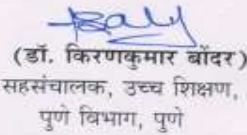 (डॉ. किरणकुमार बोंदर)
सहसंचालक, उच्च शिक्षण,
पुणे विभाग, पुणे